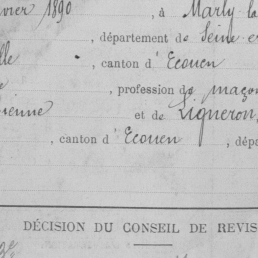 vrier 1890, à Marly la
, département de Seine e
lle, canton d'Ecouen
, profession de maçon
ienne et de Ligneron,
, canton d'Ecouen, dép
DÉCISION DU CONSEIL DE REVIS